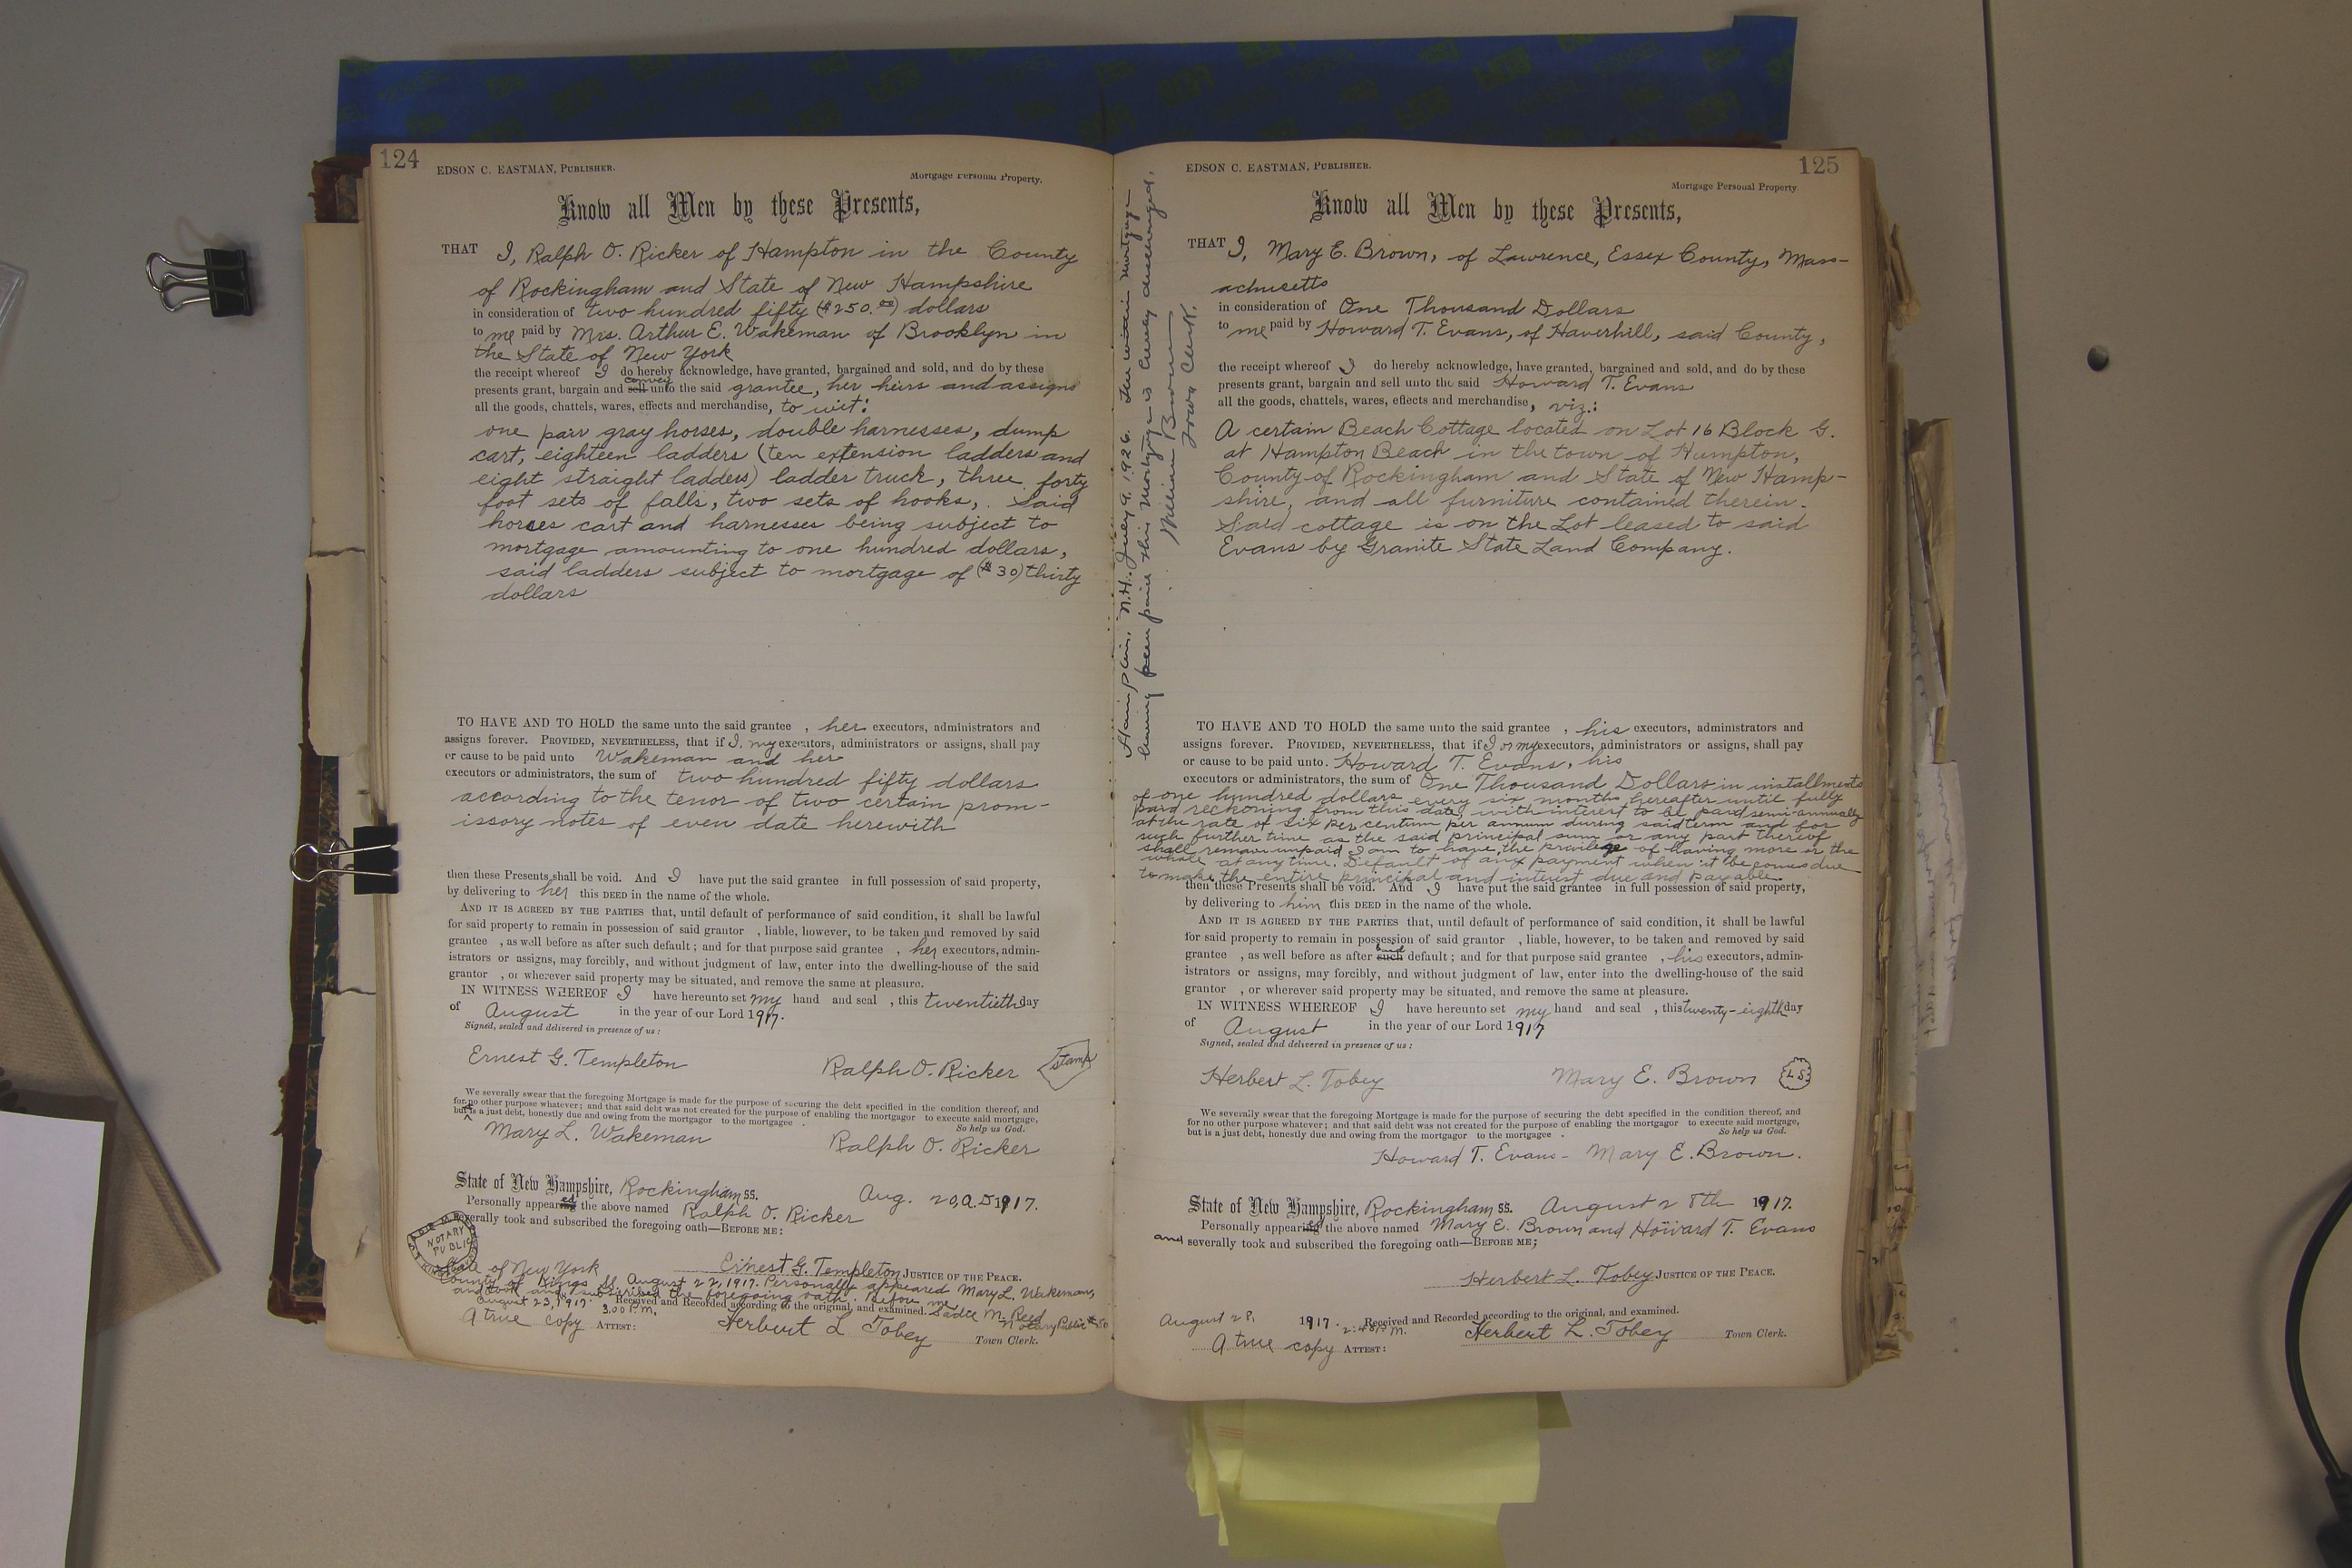 124
EDSON C. EASTMAN, PUBLISHER.
Mortgage Personal Property.
Know all Men by these Presents,
THAT I, Ralph O. Ricker of Hampton in the County
of Rockingham and State of New Hampshire
in consideration of two hundred fifty ($250.00) dollars
to me paid by Mrs. Arthur E. Wakeman of Brooklyn in
the State of New York
the receipt whereof I do hereby acknowledge, have granted, bargained and sold, and do by these
convey
presents grant, bargain and sell unto the said grantee, her heirs and assigns
all the goods, chattels, wares, effects and merchandise, to wit:
one pair gray horses, double harnesses, dump
cart, eighteen ladders (ten extension ladders and
eight straight ladders) ladder truck, three forty
foot sets of falls, two sets of hooks,. Said
horses cart and harnesses being subject to
mortgage amounting to one hundred dollars,
said ladders subject to mortgage of ($30) thirty
dollars
TO HAVE AND TO HOLD the same unto the said grantee , her executors, administrators and
assigns forever. PROVIDED, NEVERTHELESS, that if I, my executors, administrators or assigns, shall pay
or cause to be paid unto Wakeman and her
executors or administrators, the sum of two hundred fifty dollars
according to the tenor of two certain prom-
issory notes of even date herewith
then these Presents shall be void. And I have put the said grantee in full possession of said property,
by delivering to her this DEED in the name of the whole.
AND IT IS AGREED BY THE PARTIES that, until default of performance of said condition, it shall be lawful
for said property to remain in possession of said grantor , liable, however, to be taken and removed by said
grantee , as well before as after such default; and for that purpose said grantee , her executors, admin-
istrators or assigns, may forcibly, and without judgment of law, enter into the dwelling-house of the said
grantor , or wherever said property may be situated, and remove the same at pleasure.
IN WITNESS WHEREOF I have hereunto set my hand and seal , this twentieth day
of August in the year of our Lord 1917.
Signed, sealed and delivered in presence of us:
Ernest G. Templeton Ralph O. Ricker Stamp
We severally swear that the foregoing Mortgage is made for the purpose of securing the debt specified in the condition thereof, and
for no other purpose whatever; and that said debt was not created for the purpose of enabling the mortgagor to execute said mortgage,
but is a just debt, honestly due and owing from the mortgagor to the mortgagee . So help us God.
Mary L. Wakeman Ralph O. Ricker
State of New Hampshire, Rockingham ss. Aug. 20, A.D. 1917.
Personally appeared the above named Ralph O. Ricker
severally took and subscribed the foregoing oath—BEFORE ME:
NOTARY
PUBLIC
Ernest G. Templeton JUSTICE OF THE PEACE.
State of New York
County of Kings SS. August 22, 1917. Personally appeared Mary L. Wakeman,
and took and subscribed the foregoing oath. Before me
Sadie M. Reed
Notary Public #50
August 23, 1917. 3.00 P.M. Received and Recorded according to the original, and examined.
A true copy ATTEST: Herbert L Tobey Town Clerk.
Hampton, N.H. July 9, 1926. The within mortgage
having been paid this mortgage is hereby discharged.
William Brown
Town Clerk.
125
EDSON C. EASTMAN, PUBLISHER.
Mortgage Personal Property
Know all Men by these Presents,
THAT I, Mary E. Brown, of Lawrence, Essex County, Mass-
achusetts
in consideration of One Thousand Dollars
to me paid by Howard T. Evans, of Haverhill, said County,
the receipt whereof I do hereby acknowledge, have granted, bargained and sold, and do by these
presents grant, bargain and sell unto the said Howard T. Evans
all the goods, chattels, wares, effects and merchandise, viz.:
A certain Beach Cottage located on Lot 16 Block G.
at Hampton Beach in the town of Hampton,
County of Rockingham and State of New Hamp-
shire, and all furniture contained therein.
Said cottage is on the Lot leased to said
Evans by Granite State Land Company.
TO HAVE AND TO HOLD the same unto the said grantee , his executors, administrators and
assigns forever. PROVIDED, NEVERTHELESS, that if I or my executors, administrators or assigns, shall pay
or cause to be paid unto. Howard T. Evans, his
executors or administrators, the sum of One Thousand Dollars in installments
of one hundred dollars every six months hereafter until fully
paid reckoning from this date, with interest to be paid semi-annually
at the rate of six per centum per annum during said term and for
such further time as the said principal sum or any part thereof
shall remain unpaid I am to have the privilege of having more or the
whole at any time. Default of any payment when it becomes due
to make the entire principal and interest due and payable.
then these Presents shall be void. And I have put the said grantee in full possession of said property,
by delivering to him this DEED in the name of the whole.
AND IT IS AGREED BY THE PARTIES that, until default of performance of said condition, it shall be lawful
for said property to remain in possession of said grantor , liable, however, to be taken and removed by said
said
grantee , as well before as after such default; and for that purpose said grantee , his executors, admin-
istrators or assigns, may forcibly, and without judgment of law, enter into the dwelling-house of the said
grantor , or wherever said property may be situated, and remove the same at pleasure.
IN WITNESS WHEREOF I have hereunto set my hand and seal , this twenty-eighth day
of August in the year of our Lord 1917
Signed, sealed and delivered in presence of us:
Herbert L. Tobey Mary E. Brown LS
We severally swear that the foregoing Mortgage is made for the purpose of securing the debt specified in the condition thereof, and
for no other purpose whatever; and that said debt was not created for the purpose of enabling the mortgagor to execute said mortgage,
but is a just debt, honestly due and owing from the mortgagor to the mortgagee . So help us God.
Howard T. Evans - Mary E. Brown.
State of New Hampshire, Rockingham ss. August 28th 1917.
Personally appeared the above named Mary E. Brown and Howard T. Evans
and severally took and subscribed the foregoing oath—BEFORE ME;
Herbert L. Tobey JUSTICE OF THE PEACE.
August 28, 1917. 2:48 P.M. Received and Recorded according to the original, and examined.
A true copy ATTEST: Herbert L. Tobey Town Clerk.